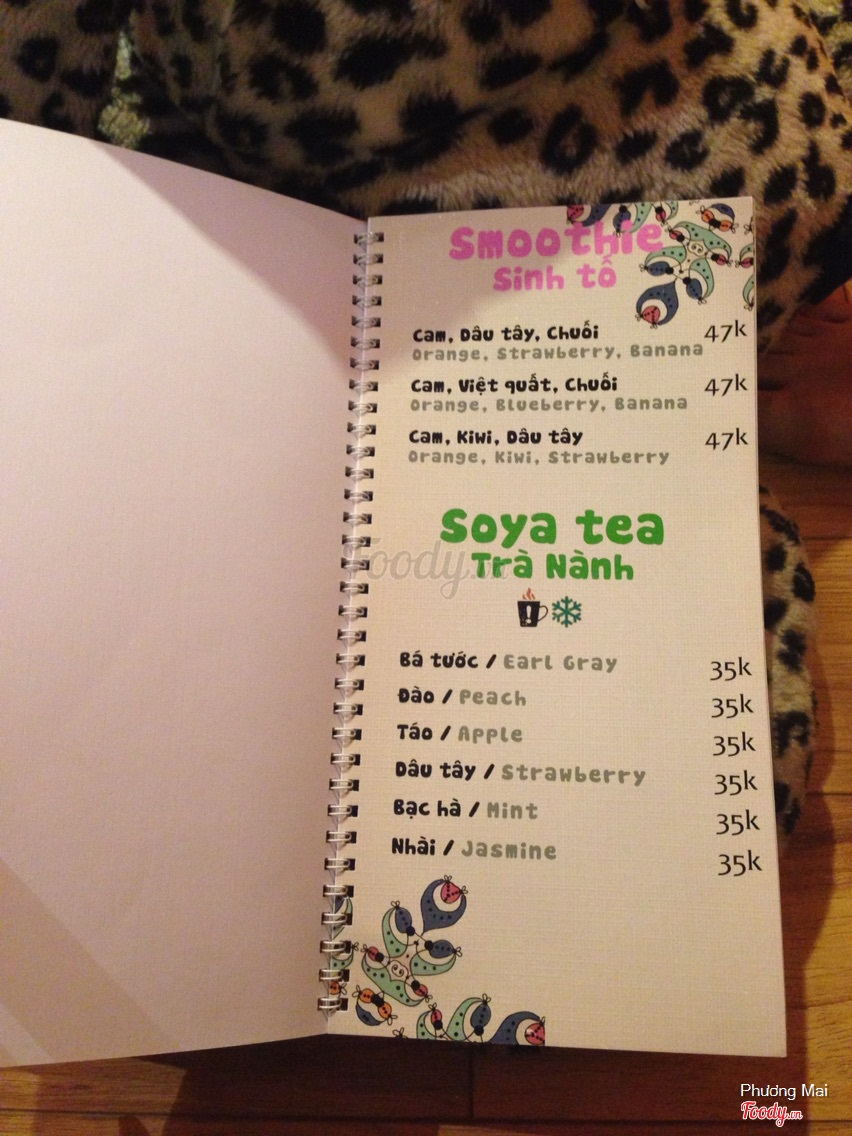 Smoothie
Sinh tố
Cam, Dâu tây, Chuối 47k
Orange, Strawberry, Banana
Cam, Việt quất, Chuối 47k
Orange, Blueberry, Banana
Cam, Kiwi, Dâu tây 47k
Orange, Kiwi, Strawberry
Soya tea
Trà Nành
Bá tước / Earl Gray 35k
Đào / Peach 35k
Táo / Apple 35k
Dâu tây / Strawberry 35k
Bạc hà / Mint 35k
Nhài / Jasmine 35k
Foody.vn
Phương Mai
Foody.vn